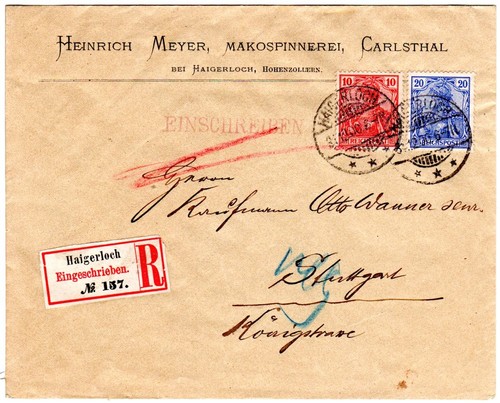 Heinrich Meyer, Makospinnerei, Carlsthal
bei Haigerloch, Hohenzollern.
10 10
20 20
HAIGERLOCH
HAIGERLOCH
REICHSPOST
EINSCHREIBEN
Herrn
Kaufmann Otto Wanner senr.
Haigerloch
Eingeschrieben.
№ 157.
R
Stuttgart
Königstrasse